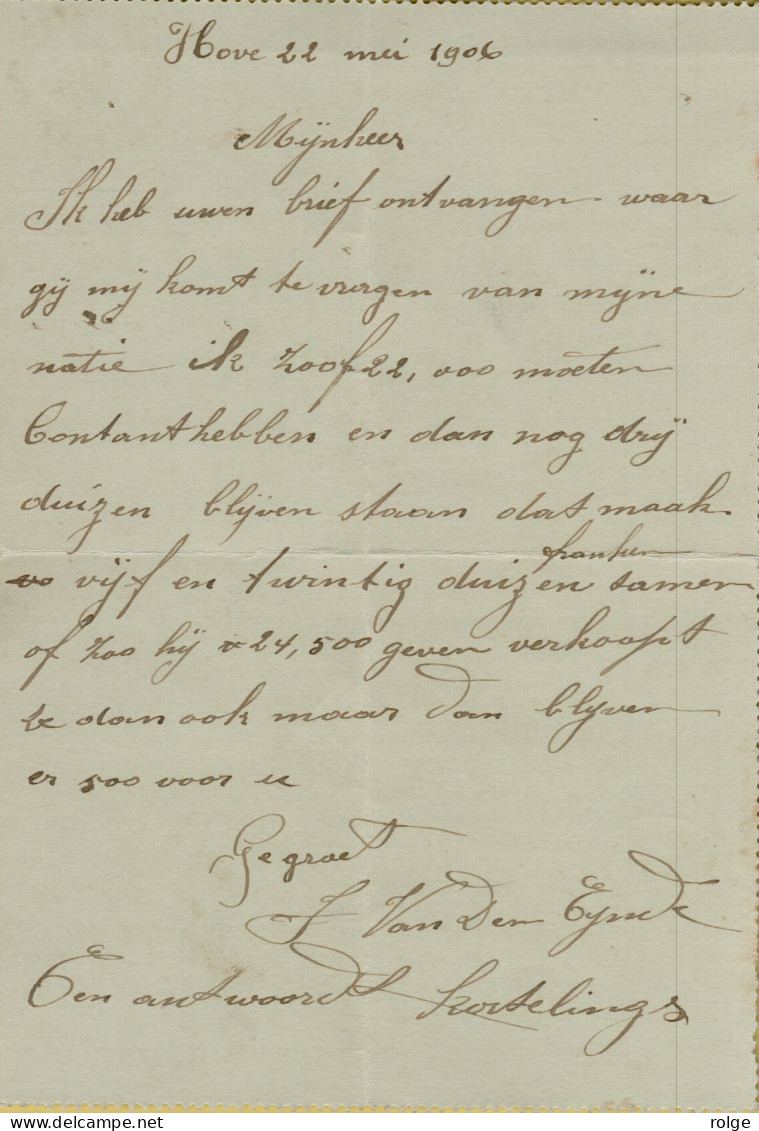 Hove 22 mei 1906
Mijnheer
Ik heb uwen brief ontvangen waar
gij mij komt te vragen van mijne
natie ik zoo f 22,000 moeten
Contant hebben en dan nog drij
duizen blijven staan dat maak
vijf en twintig duizen franken samen
of zoo hij 24,500 geven verkoopt
dan ook maar dan blijven
er 500 voor u
Gegroet
J Van Den Eynde
Een antwoordt kortelings
rolge